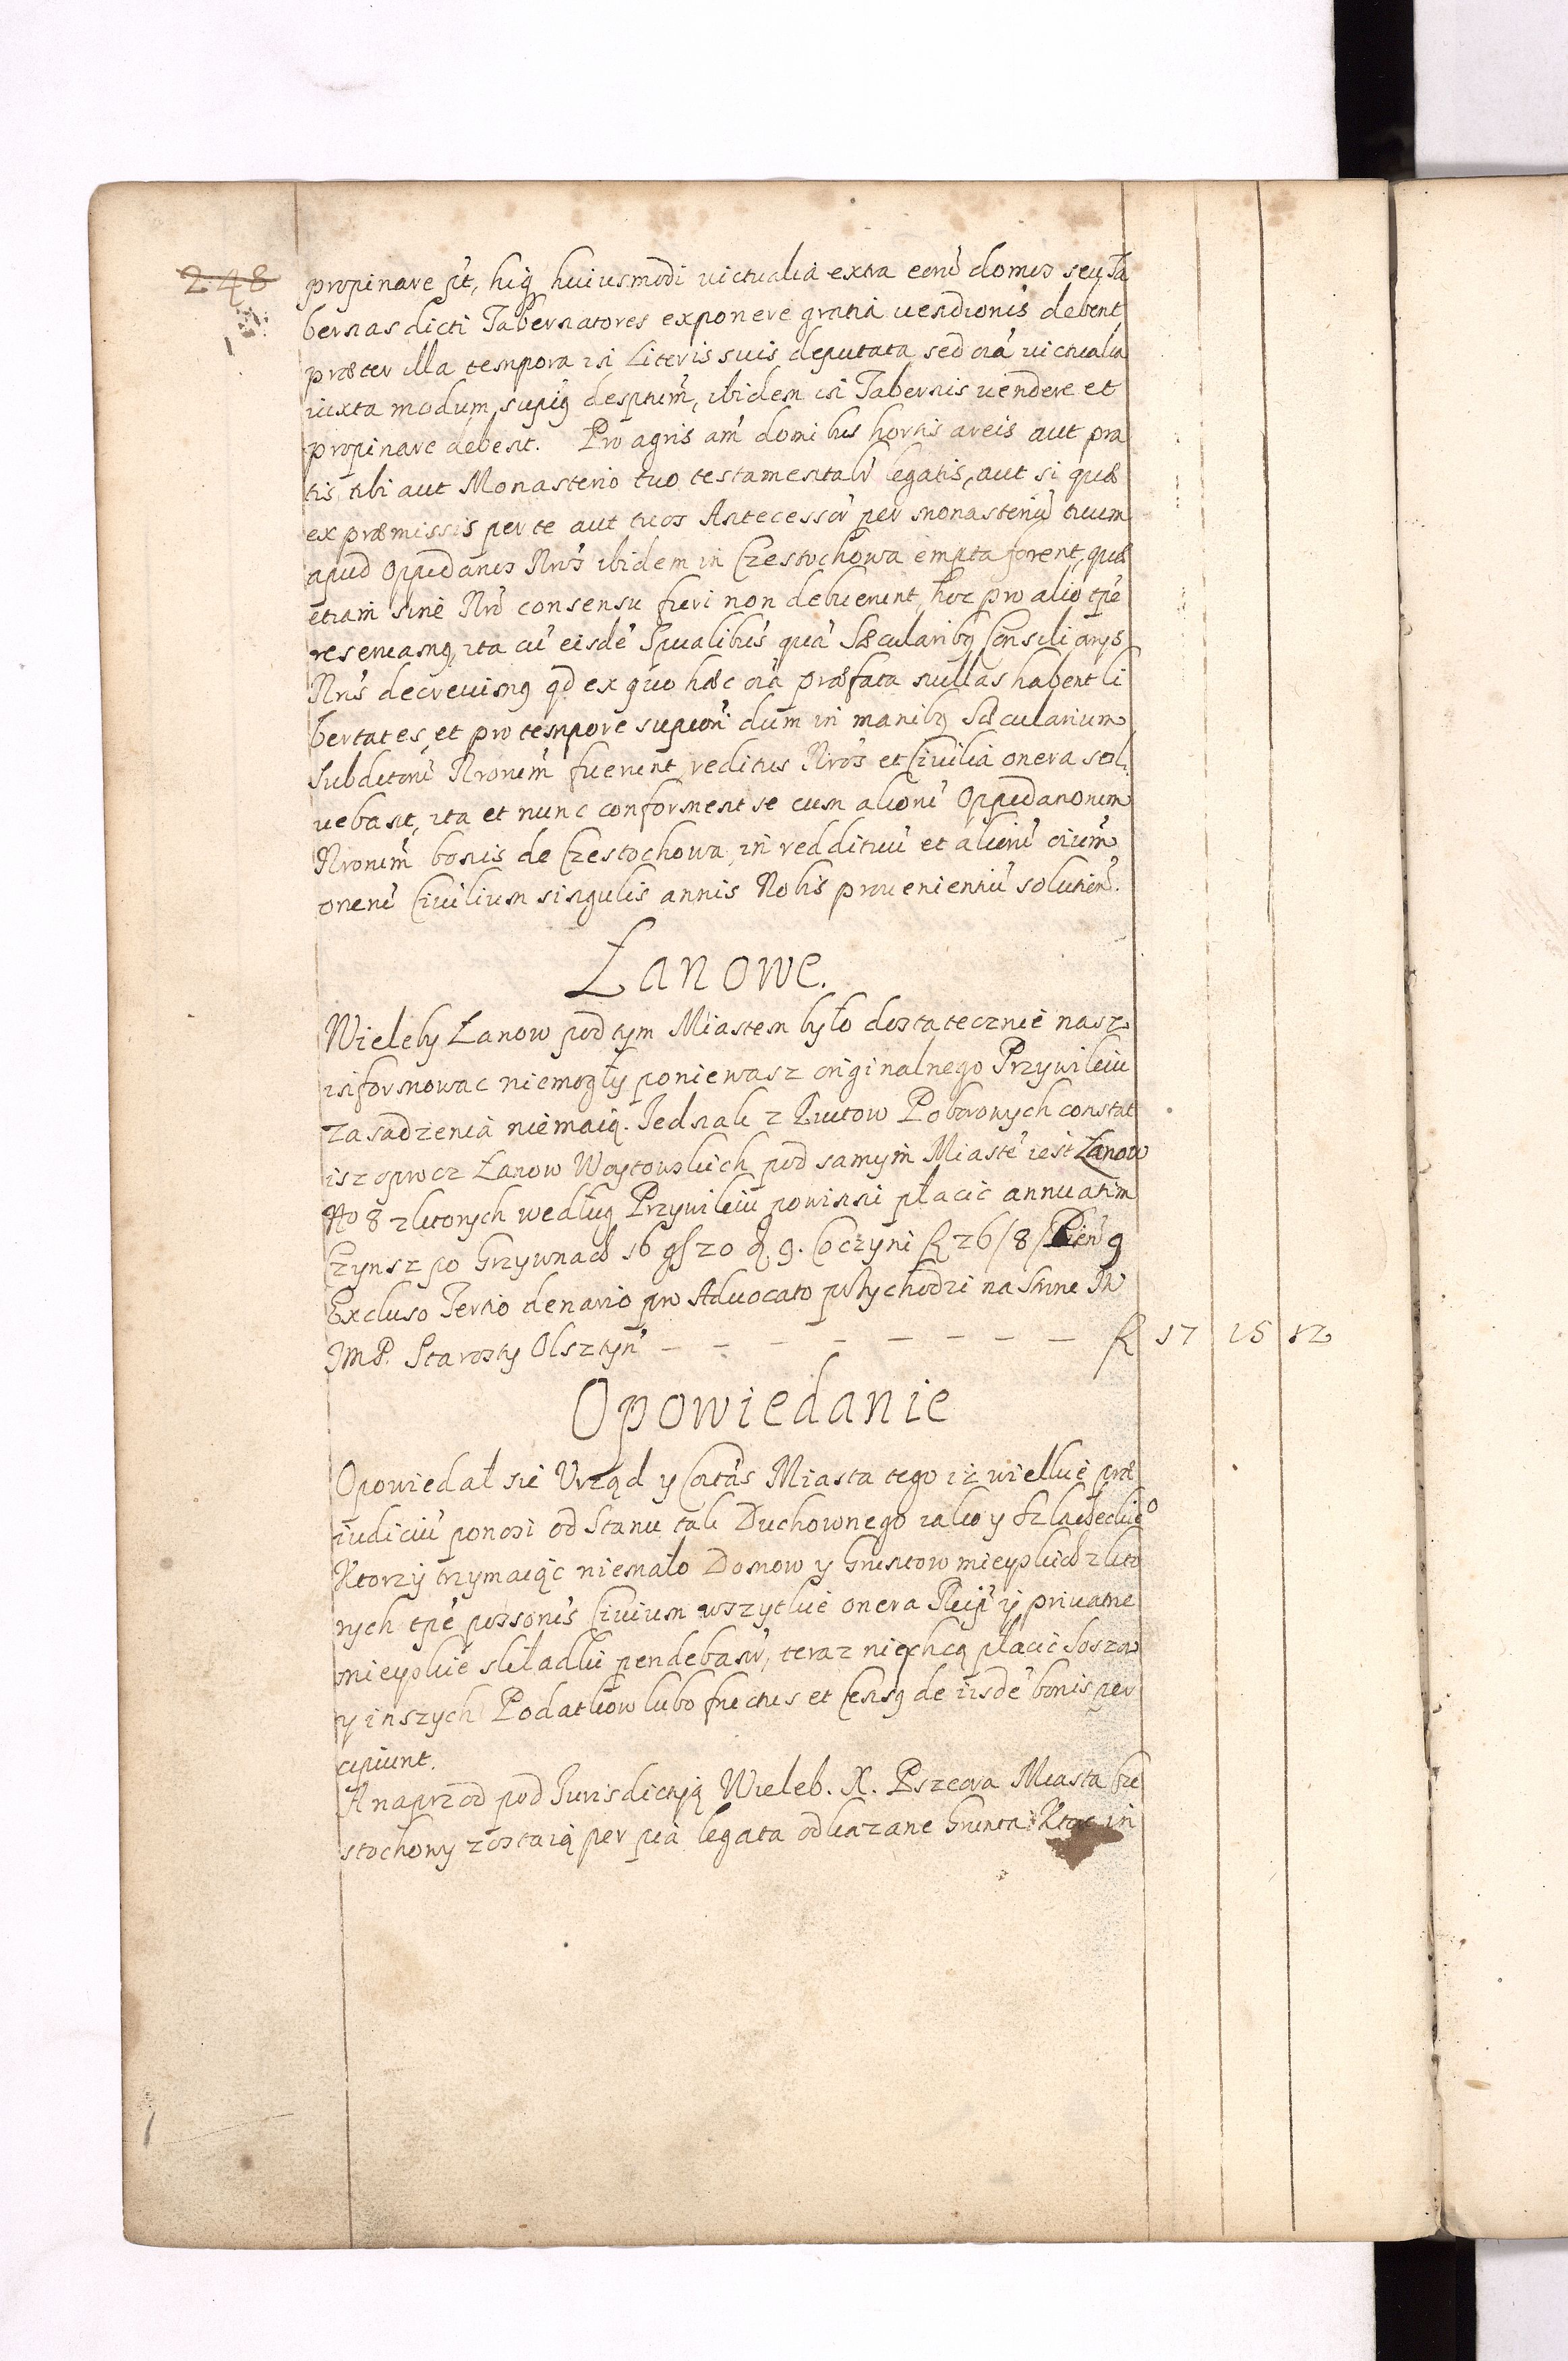 248
propinare pt, hiq huiusmodi victualia extra eorū domos seu Ta
bernas dicti Tabernatores exponere gratia uendionis debent
præter illa tempora in Literis suis deputata sed oīa uictualia
iuxta modum supius desptum, ibidem in Tabernis uendere et
propinare debent. Pro agris am̄ domibus hortis areis aut pra
tis tibi aut Monasterio tuo testamentalr legatis, aut si quæ
ex præmissis per te aut tuos Antecessor per monasteriū tuum
apud Oppidanos Nros ibidem in Czestochowa empta forent, quæ
etiam sine Nro consensu fieri non debuerunt, hoc pro alio tpe
reseruamq, ita cū eisdē Spualibus quā Sæcularibq Consiliarijs
Nris decreuimq qd ex quo hæc oīa præfata nullas habent li
bertates, et pro tempore supiori dum in manibq Sæcularium
Subditorū Nrorum fuerunt, reditus Nros et Ciuilia onera sol
uebant, ita et nunc conforment se cum aliorū Oppidanorum
Nrorum bonis de Czestochowa, in reddituū et aliorū oium
onerū Ciuilium singulis annis Nobis prouenientiū solutioē.
Łanowe.
Wieleby Łanow pod tym Miastem było dostatecznie nasz
informowac niemogły poniewasz originalnego Przywileiu
zasadzenia niemaią. Jednak z Kwitow Poborowych constat
isz oprocz Łanow Woytowskich pod samym Miastē iest Łanow
No 8 z ktorych według Przywileiu powinni płacic annuatim
Czynsz po Grzywnach 16 gſ 20 q. 9. Co czyni ƒ 26/8/ Pien 9
Excluso Tertio denario pro Aduocato przychodzi na Strone JW
JMP. Starosty Olsztyn — — — — — — — — ƒ 17 15 12
Opowiedanie
Opowiedał sie Vrząd y Cōitas Miasta tego iż wielkie præ
iudiciū ponosi od Stanu tak Duchownego iako y Szlacheckieo
Ktorzy trzymaiąc niemało Domow y Gruntow mieyskich z kto
rych tpe possonis Ciuium wszytkie onera Reip y priuatne
mieyskie składki pendebantr, teraz niechcą płacic Soszow
y inszych Podatkow lubo fructus et Censq de iisdē bonis per
cipiunt.
A naprzod pod Jurisdictyą Wieleb. X. Pszeora Miasta Cze
stochowy zostaią per pia legata odkazane Grunta Ktore in